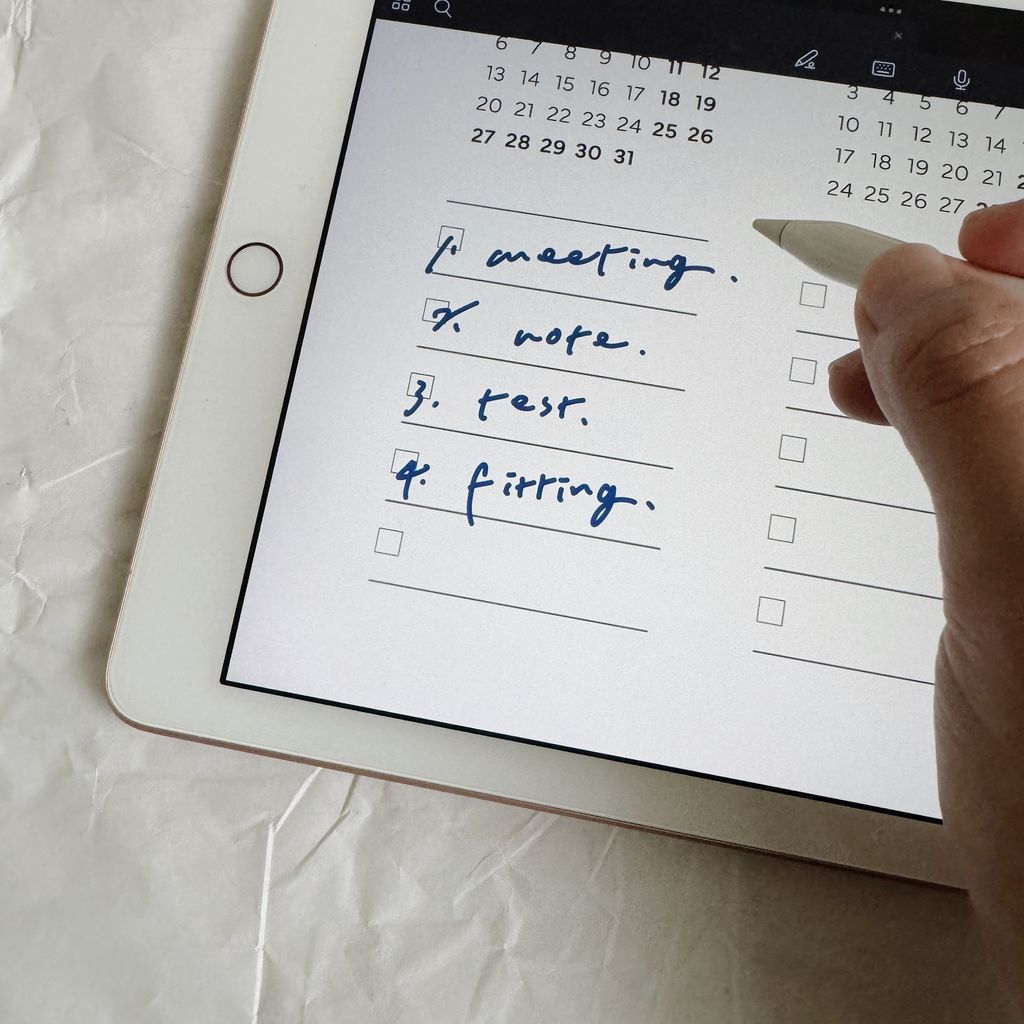 6 7 8 9 10 11 12
13 14 15 16 17 18 19
20 21 22 23 24 25 26
27 28 29 30 31
3 4 5 6 7
10 11 12 13 14
17 18 19 20 21
24 25 26 27
1. meeting.
2. note.
3. test.
4. fitting.